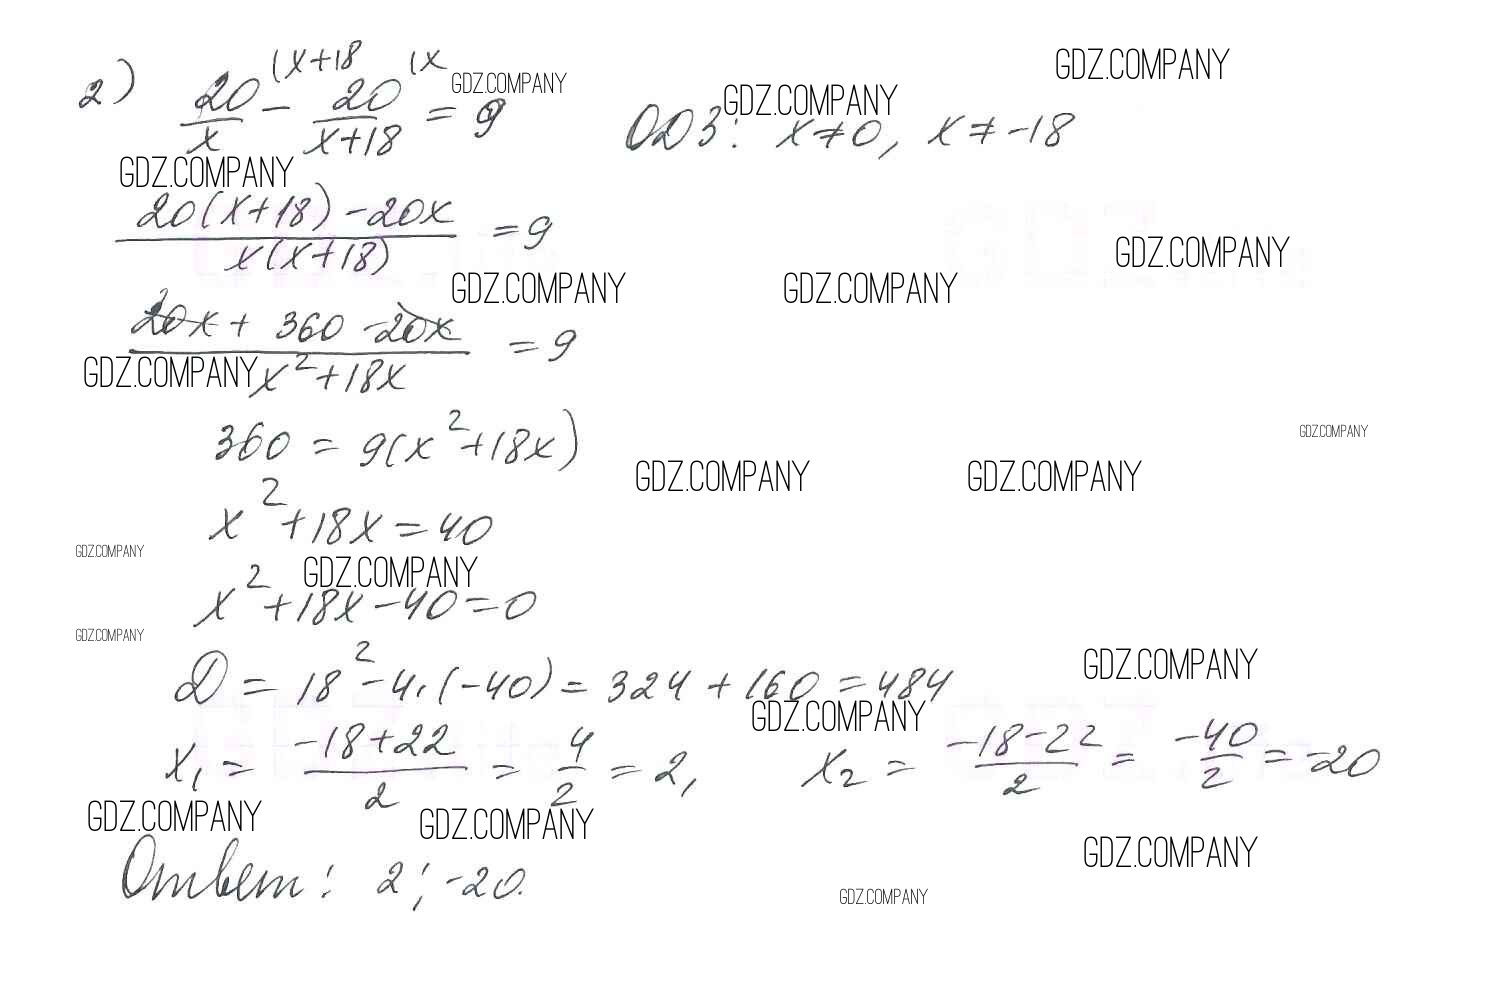 GDZ.COMPANY
2) 20/x (x+18 - 20/(x+18) (x = 9 ОДЗ: x≠0, x≠-18
GDZ.COMPANY GDZ.COMPANY
GDZ.COMPANY
(20(x+18)-20x)/(x(x+18)) = 9
GDZ.COMPANY
GDZ.COMPANY GDZ.COMPANY
(20x + 360 - 20x)/(x²+18x) = 9
GDZ.COMPANY
360 = 9(x²+18x)
GDZ.COMPANY
GDZ.COMPANY GDZ.COMPANY
x²+18x=40
GDZ.COMPANY
GDZ.COMPANY
x²+18x-40=0
GDZ.COMPANY
D = 18²-4·(-40) = 324+160=484
GDZ.COMPANY
GDZ.COMPANY
x₁ = (-18+22)/2 = 4/2 = 2, x₂ = (-18-22)/2 = -40/2 = -20
GDZ.COMPANY GDZ.COMPANY
GDZ.COMPANY
Ответ: 2; -20.
GDZ.COMPANY